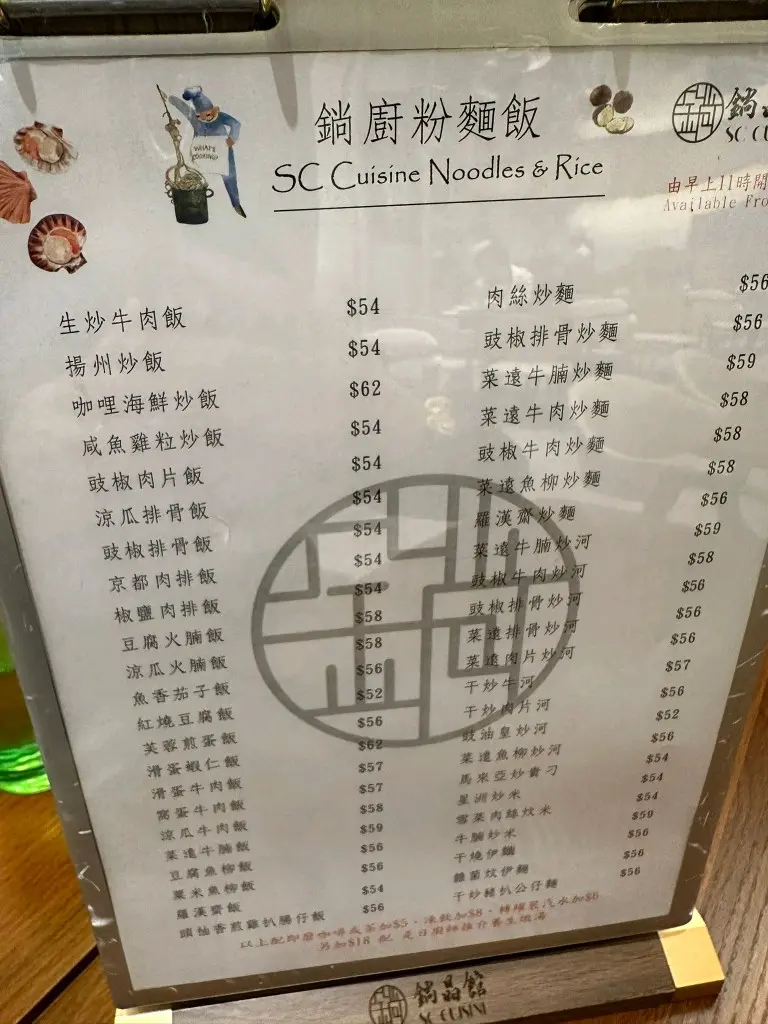 鎬廚粉麵飯
SC Cuisine Noodles & Rice
WHAT'S COOKING?
SC CU
由早上11時開
Available Fro
生炒牛肉飯 $54
揚州炒飯 $54
咖哩海鮮炒飯 $62
咸魚雞粒炒飯 $54
豉椒肉片飯 $54
涼瓜排骨飯 $54
豉椒排骨飯 $54
京都肉排飯 $54
椒鹽肉排飯 $54
豆腐火腩飯 $58
涼瓜火腩飯 $58
魚香茄子飯 $56
紅燒豆腐飯 $52
芙蓉煎蛋飯 $56
滑蛋蝦仁飯 $62
滑蛋牛肉飯 $57
窩蛋牛肉飯 $57
涼瓜牛肉飯 $58
菜遠牛腩飯 $59
豆腐魚柳飯 $56
粟米魚柳飯 $56
羅漢齋飯 $54
頭抽香煎雞扒腸仔飯 $56
肉絲炒麵 $56
豉椒排骨炒麵 $56
菜遠牛腩炒麵 $59
菜遠牛肉炒麵 $58
豉椒牛肉炒麵 $58
菜遠魚柳炒麵 $58
羅漢齋炒麵 $56
菜遠牛腩炒河 $59
豉椒牛肉炒河 $58
豉椒排骨炒河 $56
菜遠排骨炒河 $56
菜遠肉片炒河 $56
干炒牛河 $57
干炒肉片河 $56
豉油皇炒河 $52
菜遠魚柳炒河 $56
馬來亞炒貴刁 $54
星洲炒米 $54
雪菜肉絲炆米 $54
牛腩炒米 $59
干燒伊麵 $56
雜菌炆伊麵 $56
干炒豬扒公仔麵 $56
以上配即磨咖啡或茶加$5，凍飲加$8，轉罐裝汽水加$6
另加$18 配 是日廚師推介養生燉湯
鎬晶館
SC CUISINE